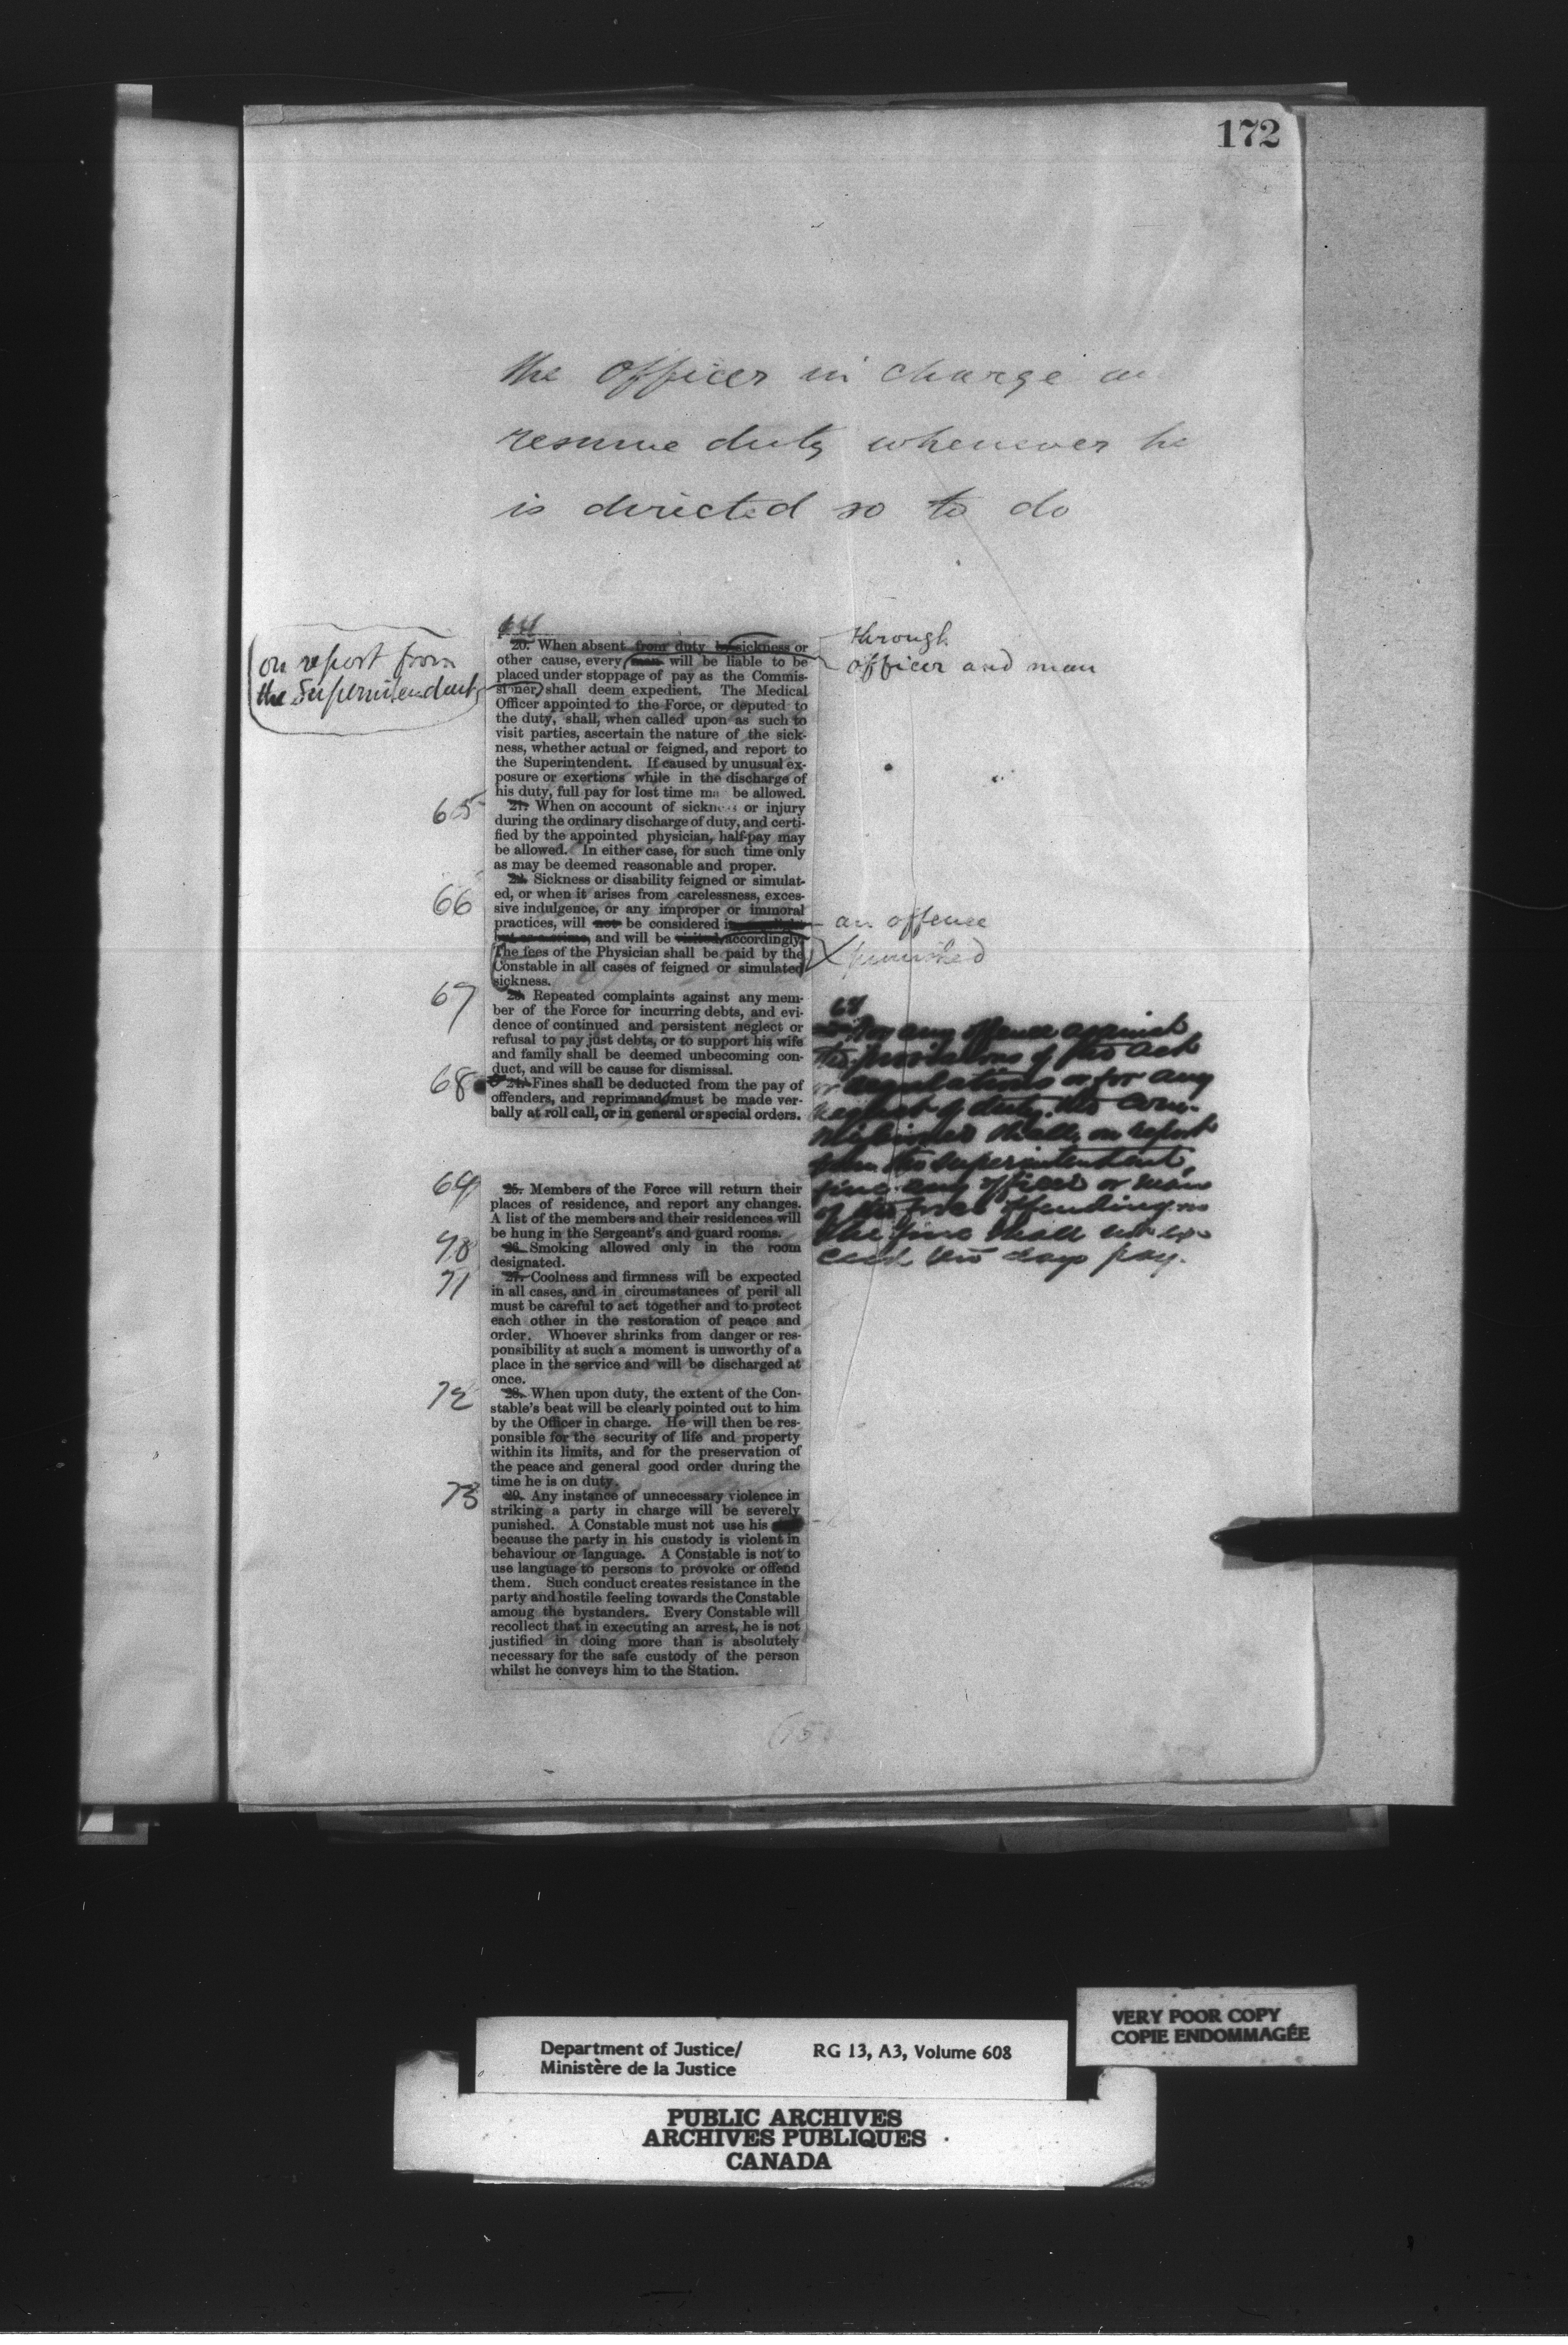 172
the Officer in charge
resume duty whenever he
is directed so to do
64
on report from
the Superintendent
through
officer and man
20. When absent from duty by sickness or
other cause, every man will be liable to be
placed under stoppage of pay as the Commis-
sioner, shall deem expedient. The Medical
Officer appointed to the Force, or deputed to
the duty, shall, when called upon as such to
visit parties, ascertain the nature of the sick-
ness, whether actual or feigned, and report to
the Superintendent. If caused by unusual ex-
posure or exertions while in the discharge of
his duty, full pay for lost time ma be allowed.
65
21. When on account of sickness or injury
during the ordinary discharge of duty, and certi-
fied by the appointed physician, half-pay may
be allowed. In either case, for such time only
as may be deemed reasonable and proper.
66
22. Sickness or disability feigned or simulat-
ed, or when it arises from carelessness, exces-
sive indulgence, or any improper or immoral
practices, will not be considered
an offence
but as a crime, and will be visited accordingly.
punished
The fees of the Physician shall be paid by the
Constable in all cases of feigned or simulated
sickness.
67
23. Repeated complaints against any mem-
ber of the Force for incurring debts, and evi-
dence of continued and persistent neglect or
refusal to pay just debts, or to support his wife
and family shall be deemed unbecoming con-
duct, and will be cause for dismissal.
68
24. Fines shall be deducted from the pay of
offenders, and reprimand must be made ver-
bally at roll call, or in general or special orders.
68
For any offence against
the provisions of this Act
or regulations or for any
neglect of duty the Com-
missioner shall, on report
from the Superintendent,
fine any officer or man
of the force offending
the fine shall not ex-
ceed ten days pay.
69
25. Members of the Force will return their
places of residence, and report any changes.
A list of the members and their residences will
be hung in the Sergeant's and guard rooms.
70
26. Smoking allowed only in the room
designated.
71
27. Coolness and firmness will be expected
in all cases, and in circumstances of peril all
must be careful to act together and to protect
each other in the restoration of peace and
order. Whoever shrinks from danger or res-
ponsibility at such a moment is unworthy of a
place in the service and will be discharged at
once.
72
28. When upon duty, the extent of the Con-
stable's beat will be clearly pointed out to him
by the Officer in charge. He will then be res-
ponsible for the security of life and property
within its limits, and for the preservation of
the peace and general good order during the
time he is on duty.
73
29. Any instance of unnecessary violence in
striking a party in charge will be severely
punished. A Constable must not use his
because the party in his custody is violent in
behaviour or language. A Constable is not to
use language to persons to provoke or offend
them. Such conduct creates resistance in the
party and hostile feeling towards the Constable
among the bystanders. Every Constable will
recollect that in executing an arrest, he is not
justified in doing more than is absolutely
necessary for the safe custody of the person
whilst he conveys him to the Station.
VERY POOR COPY
COPIE ENDOMMAGÉE
Department of Justice/ RG 13, A3, Volume 608
Ministère de la Justice
PUBLIC ARCHIVES
ARCHIVES PUBLIQUES
CANADA